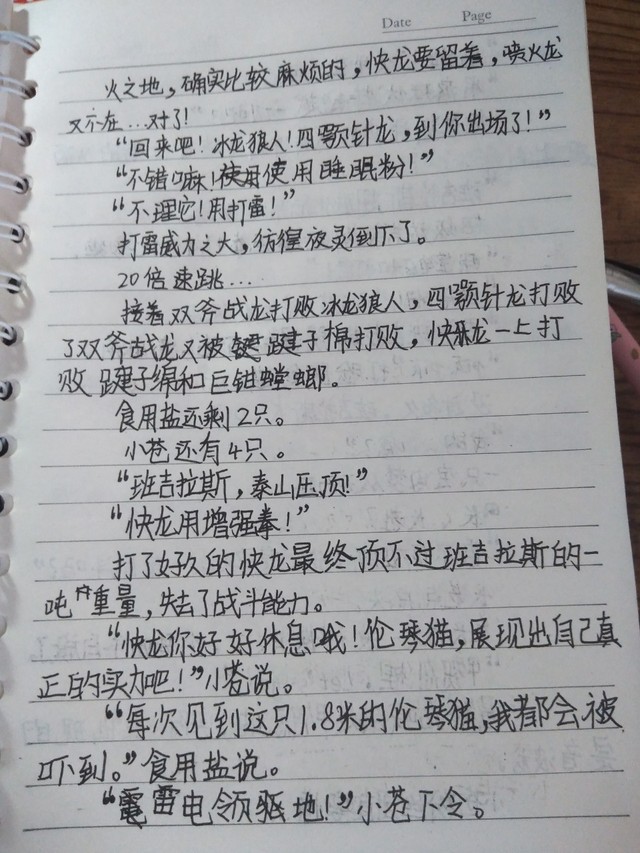 Date Page
火之地，确实比较麻烦的，快龙要留着，喷火龙
又不在…对了！
“回来吧！冰龙狼人！四颚针龙，到你出场了！”
“不错嘛！使用使用睡眠粉！”
“不理它！用打雷！”
打雷威力之大，彷徨夜灵倒下了。
20倍速跳….
接着双斧战龙打败冰龙狼人，四颚针龙打败
了双斧战龙又被毽子棉打败，快龙一上打
败毽子绵和巨钳螳螂。
食用盐还剩2只。
小苍还有4只。
“班吉拉斯，泰山压顶！”
“快龙用增强拳！”
打了好久的快龙最终顶不过班吉拉斯的一
吨重量，失去了战斗能力。
“快龙你好好休息哦！伦琴猫，展现出自己真
正的实力吧！”小苍说。
“每次见到这只1.8米的伦琴猫，我都会被
吓到。”食用盐说。
“雷电领域地！”小苍下令。